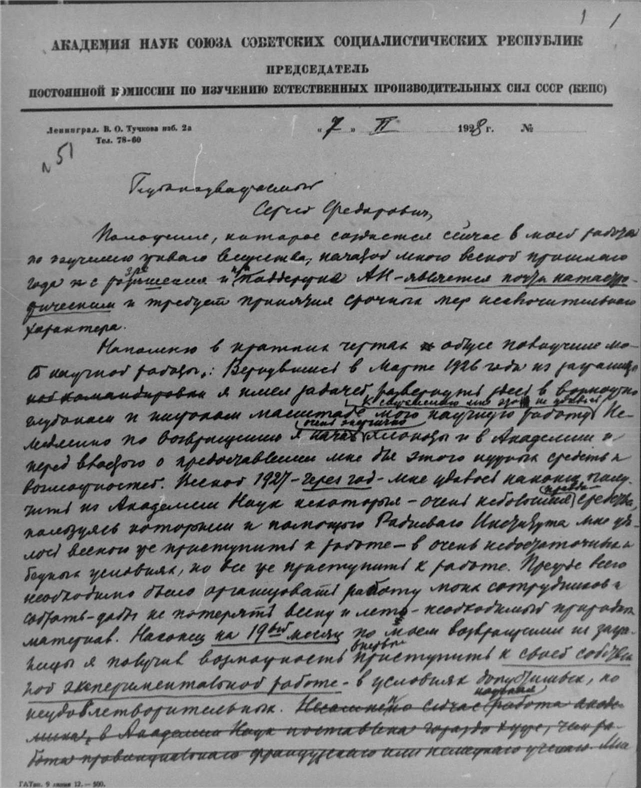 1 1
АКАДЕМИЯ НАУК СОЮЗА СОВЕТСКИХ СОЦИАЛИСТИЧЕСКИХ РЕСПУБЛИК
ПРЕДСЕДАТЕЛЬ
ПОСТОЯННОЙ КОМИССИИ ПО ИЗУЧЕНИЮ ЕСТЕСТВЕННЫХ ПРОИЗВОДИТЕЛЬНЫХ СИЛ СССР (КЕПС)
Ленинград. В. О. Тучкова наб. 2а
Тел. 78-60
"7" II 1928 г. №
№ 51
Глубокоуважаемый
Сергей Федорович,
Положение, которое создается сейчас в моей работе
по изучению живого вещества, начатой мною весной прошлого
года и с разрешения и при поддержке АН - является почти катастро-
фическим и требует принятия срочных мер исключительного
характера.
Напомню в кратких чертах общее положение мо-
ей научной работы: Вернувшись в Марте 1926 года из заграниц.
командировки я имел задачей развернуть здесь в
глубоком и широком масштабе мою научную работу. Не-
медленно по возвращении я начал в Академии и
перед о предоставлении мне для этого нужных средств и
возможностей. Весной 1927 - через год - мне удалось наконец полу-
чить из Академии Наук некоторые - очень небольшие средства,
пользуясь которыми и помощью Радиевого Института мне уда-
лось весною же приступить к работе - в очень недостаточных и
бедных условиях, но все же приступить к работе. Прежде всего
необходимо было организовать работу моих сотрудников и
собрать - дабы не потерять весну и лето - необходимый природный
материал. Наконец на 19ый месяц по моем возвращении из загра-
ницы я получил возможность впервые приступить к своей собствен-
ной экспериментальной работе - в условиях допустимых, но
неудовлетворительных. Несомненно сейчас научная работа акаде-
мика в Академии Наук поставлена гораздо хуже, чем ра-
бота провинциального французского или немецкого ученого.
ГАТис. 9 500.